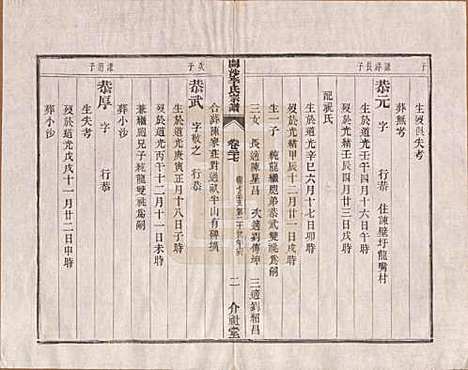 生歿俱失考
葬無考
謀諱長子
恭元 字 行恭 住諫壁圩龍嘴村
生於道光壬午四月十六日午時
歿於光緒壬辰四月廿三日戌時
配祝氏
生於道光辛巳六月十七日卯時
歿於光緒甲辰十二月廿一日戌時
生一子 純龍繼胞弟恭武雙祧爲嗣
三女 長適陳星昌 次適劉傳坤 三適劉相昌
合葬陳家莊對過祇半山有碑塡
開沙李氏宗譜
卷三七
二
介祉堂
次子
恭武 字敬之 行恭
生於道光庚寅正月十八日子時
歿於道光丙午十二月十一日未時
兼繼胞兄子純龍雙祧爲嗣
葬小沙
謀 子
恭厚 字 行恭
生失考
歿於道光戊戌十一月廿二日申時
葬小沙